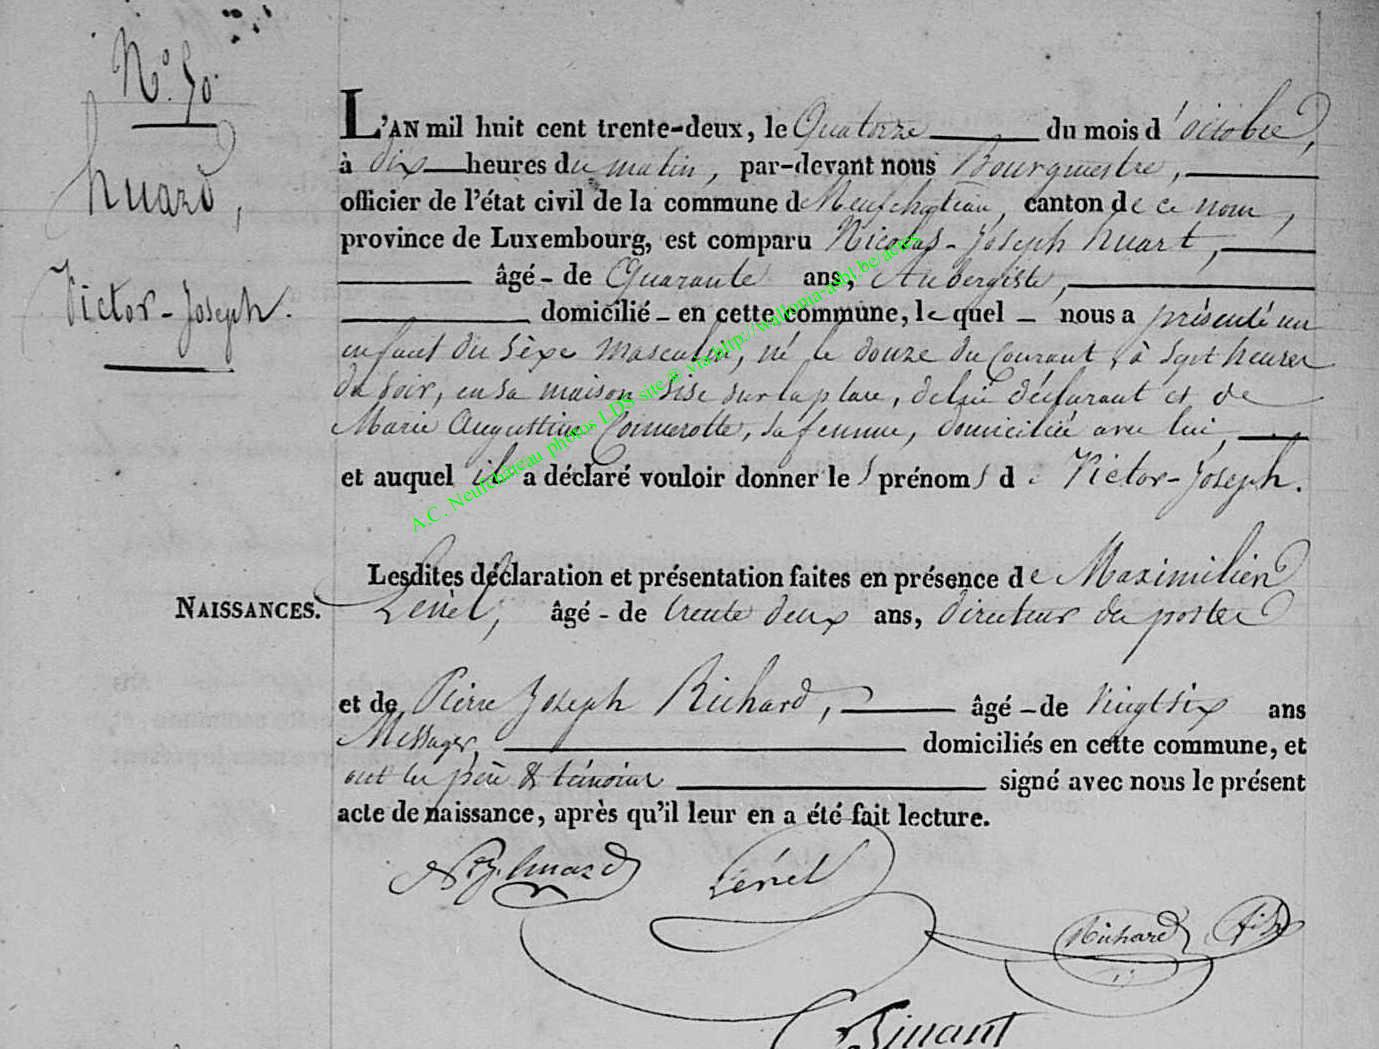 N.º 50.
huard,
Victor-Joseph.
NAISSANCES.
L'AN mil huit cent trente-deux, le Quatorze du mois d'octobre,
à dix heures du matin, par-devant nous Bourgmestre,
officier de l'état civil de la commune de Neufchateau, canton de ce nom,
province de Luxembourg, est comparu Nicolas-Joseph huart,
âgé - de Quarante ans, Aubergiste,
domicilié - en cette commune, le quel - nous a présenté un
enfant du Sèxe masculin, né le douze du Courant, à Sept heures
du Soir, en sa maison Sise sur la place, de lui déclarant et de
Marie Augustine Connerotte, sa femme, domiciliée avec lui,
et auquel il a déclaré vouloir donner les prénoms de Victor-Joseph.
Lesdites déclaration et présentation faites en présence de Maximilien
Lenèl, âgé - de trente deux ans, directeur des postes
et de Pierre Joseph Richard, âgé - de vingt six ans
Messager, domiciliés en cette commune, et
ont les père & témoins signé avec nous le présent
acte de naissance, après qu'il leur en a été fait lecture.
N. J. huard Lenèl
Richard
A.C. Neufchâteau photos LDS site © via http://wallonia-asbl.be/actes